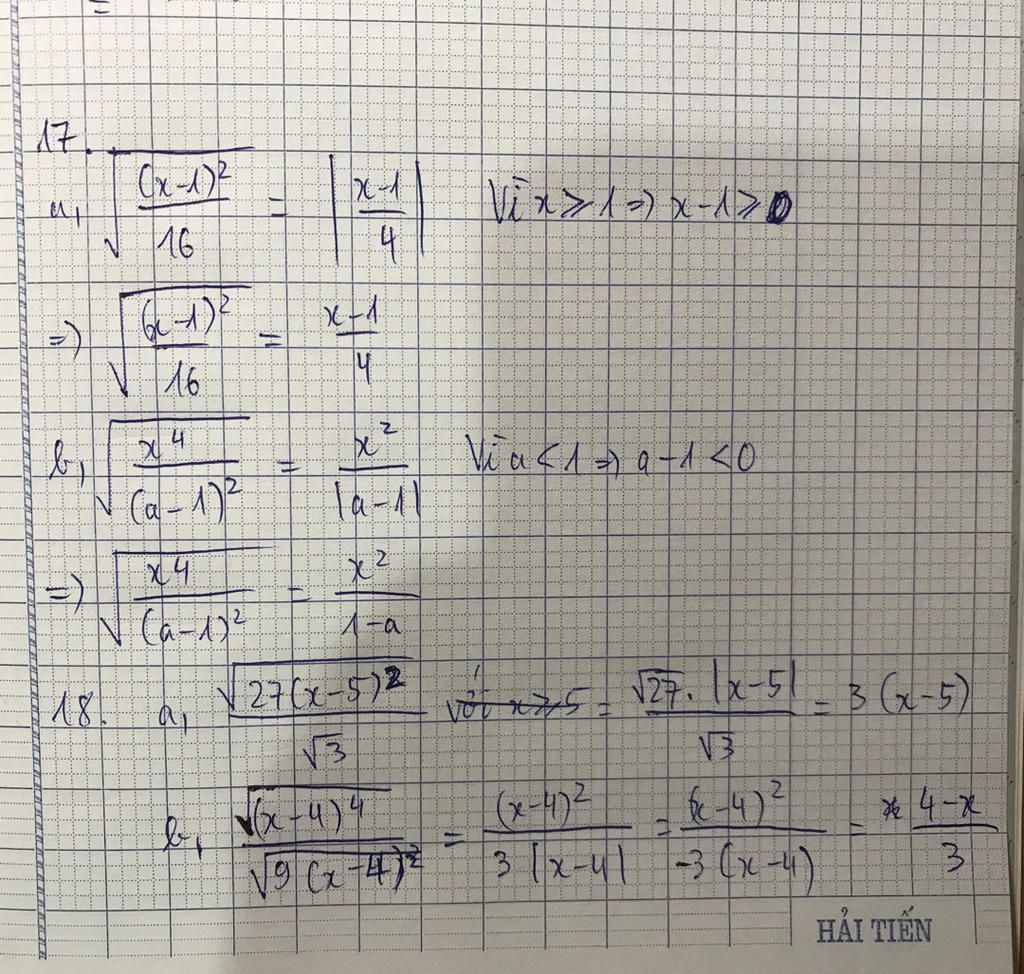 17.
a, √((x-1)²/16) = |(x-1)/4| Vì x ≥ 1 => x-1 ≥ 0
=> √((x-1)²/16) = (x-1)/4
b, √(x⁴/(a-1)²) = x²/|a-1| Vì a < 1 => a-1 < 0
=> √(x⁴/(a-1)²) = x²/(1-a)
18. a, √(27(x-5)²)/√3 = √27.|x-5|/√3 = 3(x-5)
b, √((x-4)⁴)/√(9(x-4)²) = (x-4)²/(3|x-4|) = (x-4)²/(-3(x-4)) = (4-x)/3
HẢI TIẾN